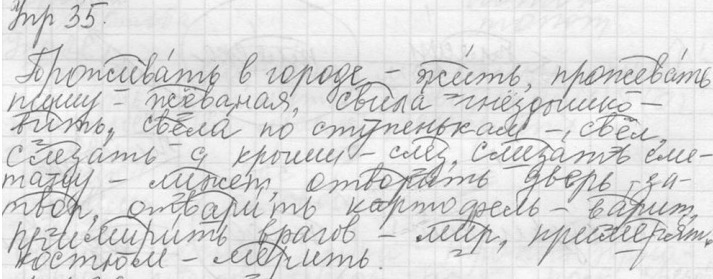 Упр 35.
Проживать в городе - жить, прожевать
пищу - жёваная, свила гнёздышко -
вить, свела по ступенькам - свёл,
слезать с крыши - слез, слизать сме-
тану - лижет, отворить дверь - за-
твор, отварить картофель - варит,
примирить врагов - мир, примерять
костюм - мерить.